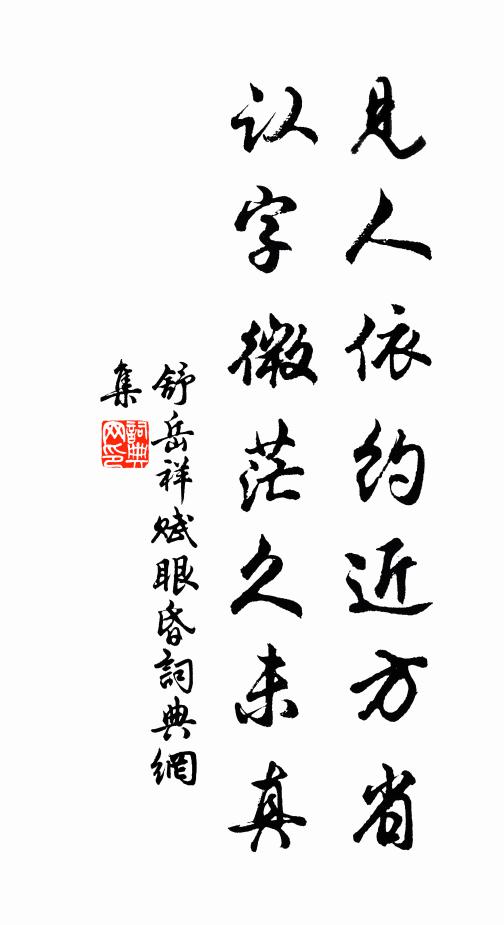 见人依约近方省
认字微茫久未真
舒岳祥赋眼昏詞典網
集
詞典
网印